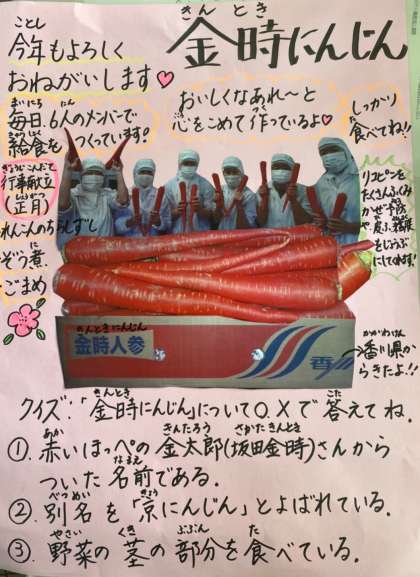 金時にんじん
きん とき
ことし
今年もよろしく
おねがいします
まいにち にん
毎日、6人のメンバーで
きゅうしょく
給食をつくっています。
おいしくなあれ〜と
心をこめて作っているよ
しっかり
食べてね!!
行事献立
(正月)
れんこんのちらしずし
ぞう煮
ごまめ
リコピンを
たくさんふくみ
かぜ予防
や、皮ふ
もじょうぶ
にしてくれます!
きんときにんじん
金時人参
香川
かがわけん
香川県か
らきたよ!!
クイズ:「金時にんじん」について○、×で答えてね。
きんとき こた
①.赤いほっぺの金太郎(坂田金時)さんから
あか きんたろう さかたきんとき
ついた名前である。
なまえ
②.別名を「京にんじん」とよばれている。
べつめい きょう
③.野菜の茎の部分を食べている。
やさい くき ぶぶん た